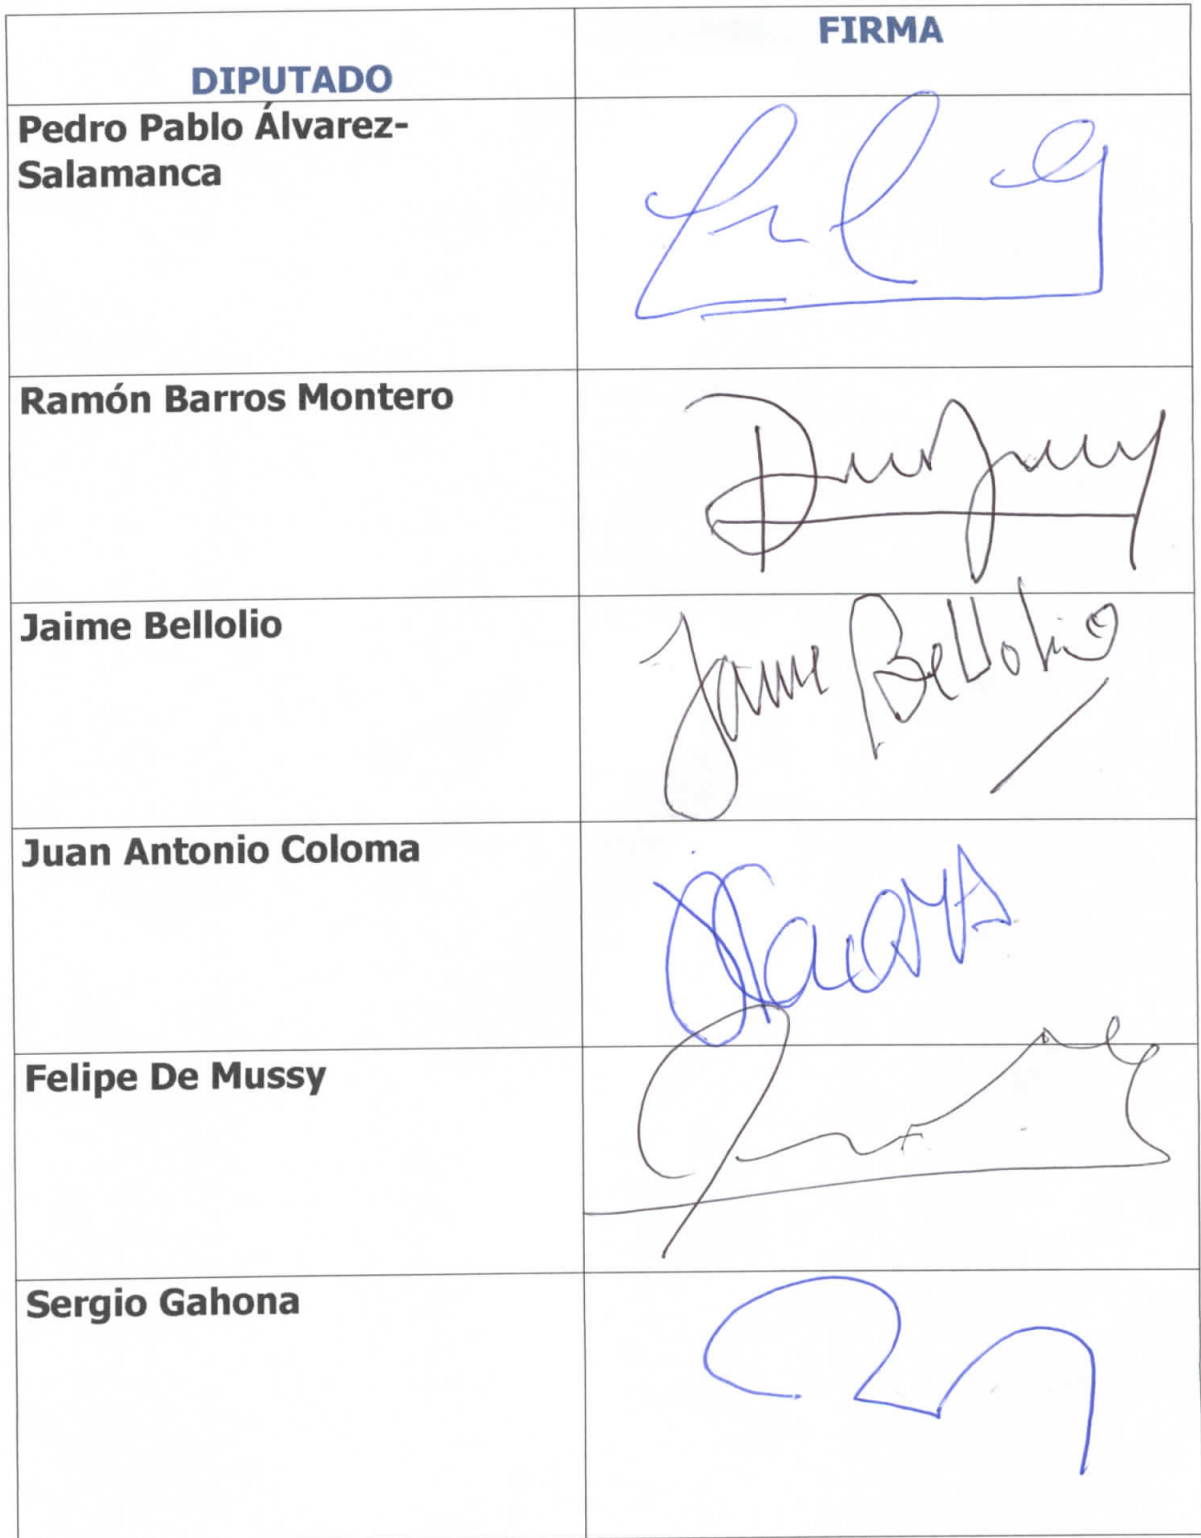 FIRMA
DIPUTADO
Pedro Pablo Álvarez-
Salamanca
Ramón Barros Montero
Jaime Bellolio
Jaime Bellolio
Juan Antonio Coloma
Felipe De Mussy
Sergio Gahona